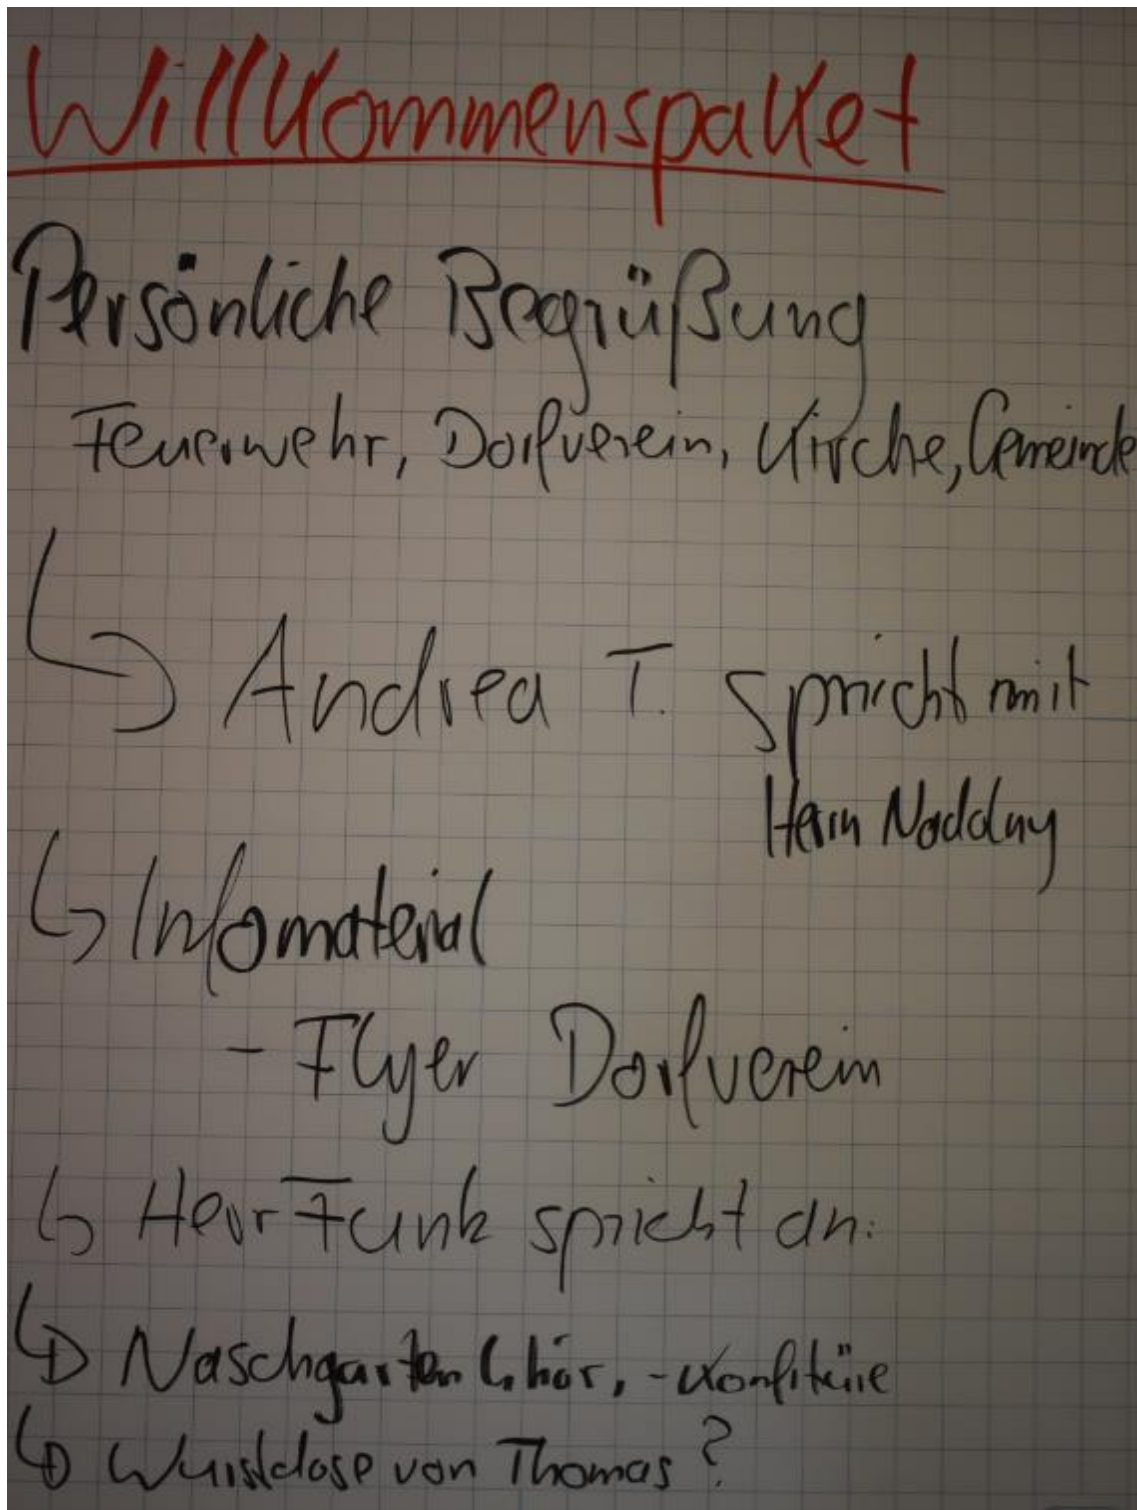 Willkommenspaket
Persönliche Begrüßung
Feuerwehr, Dorfverein, Kirche, Gemeinde
↳ Andrea T. spricht mit
Herrn Naddny
↳ Infomaterial
- Flyer Dorfverein
↳ Herr Funk spricht an:
↳ Naschgarten -Konfitüre
↳ Wurstdose von Thomas?